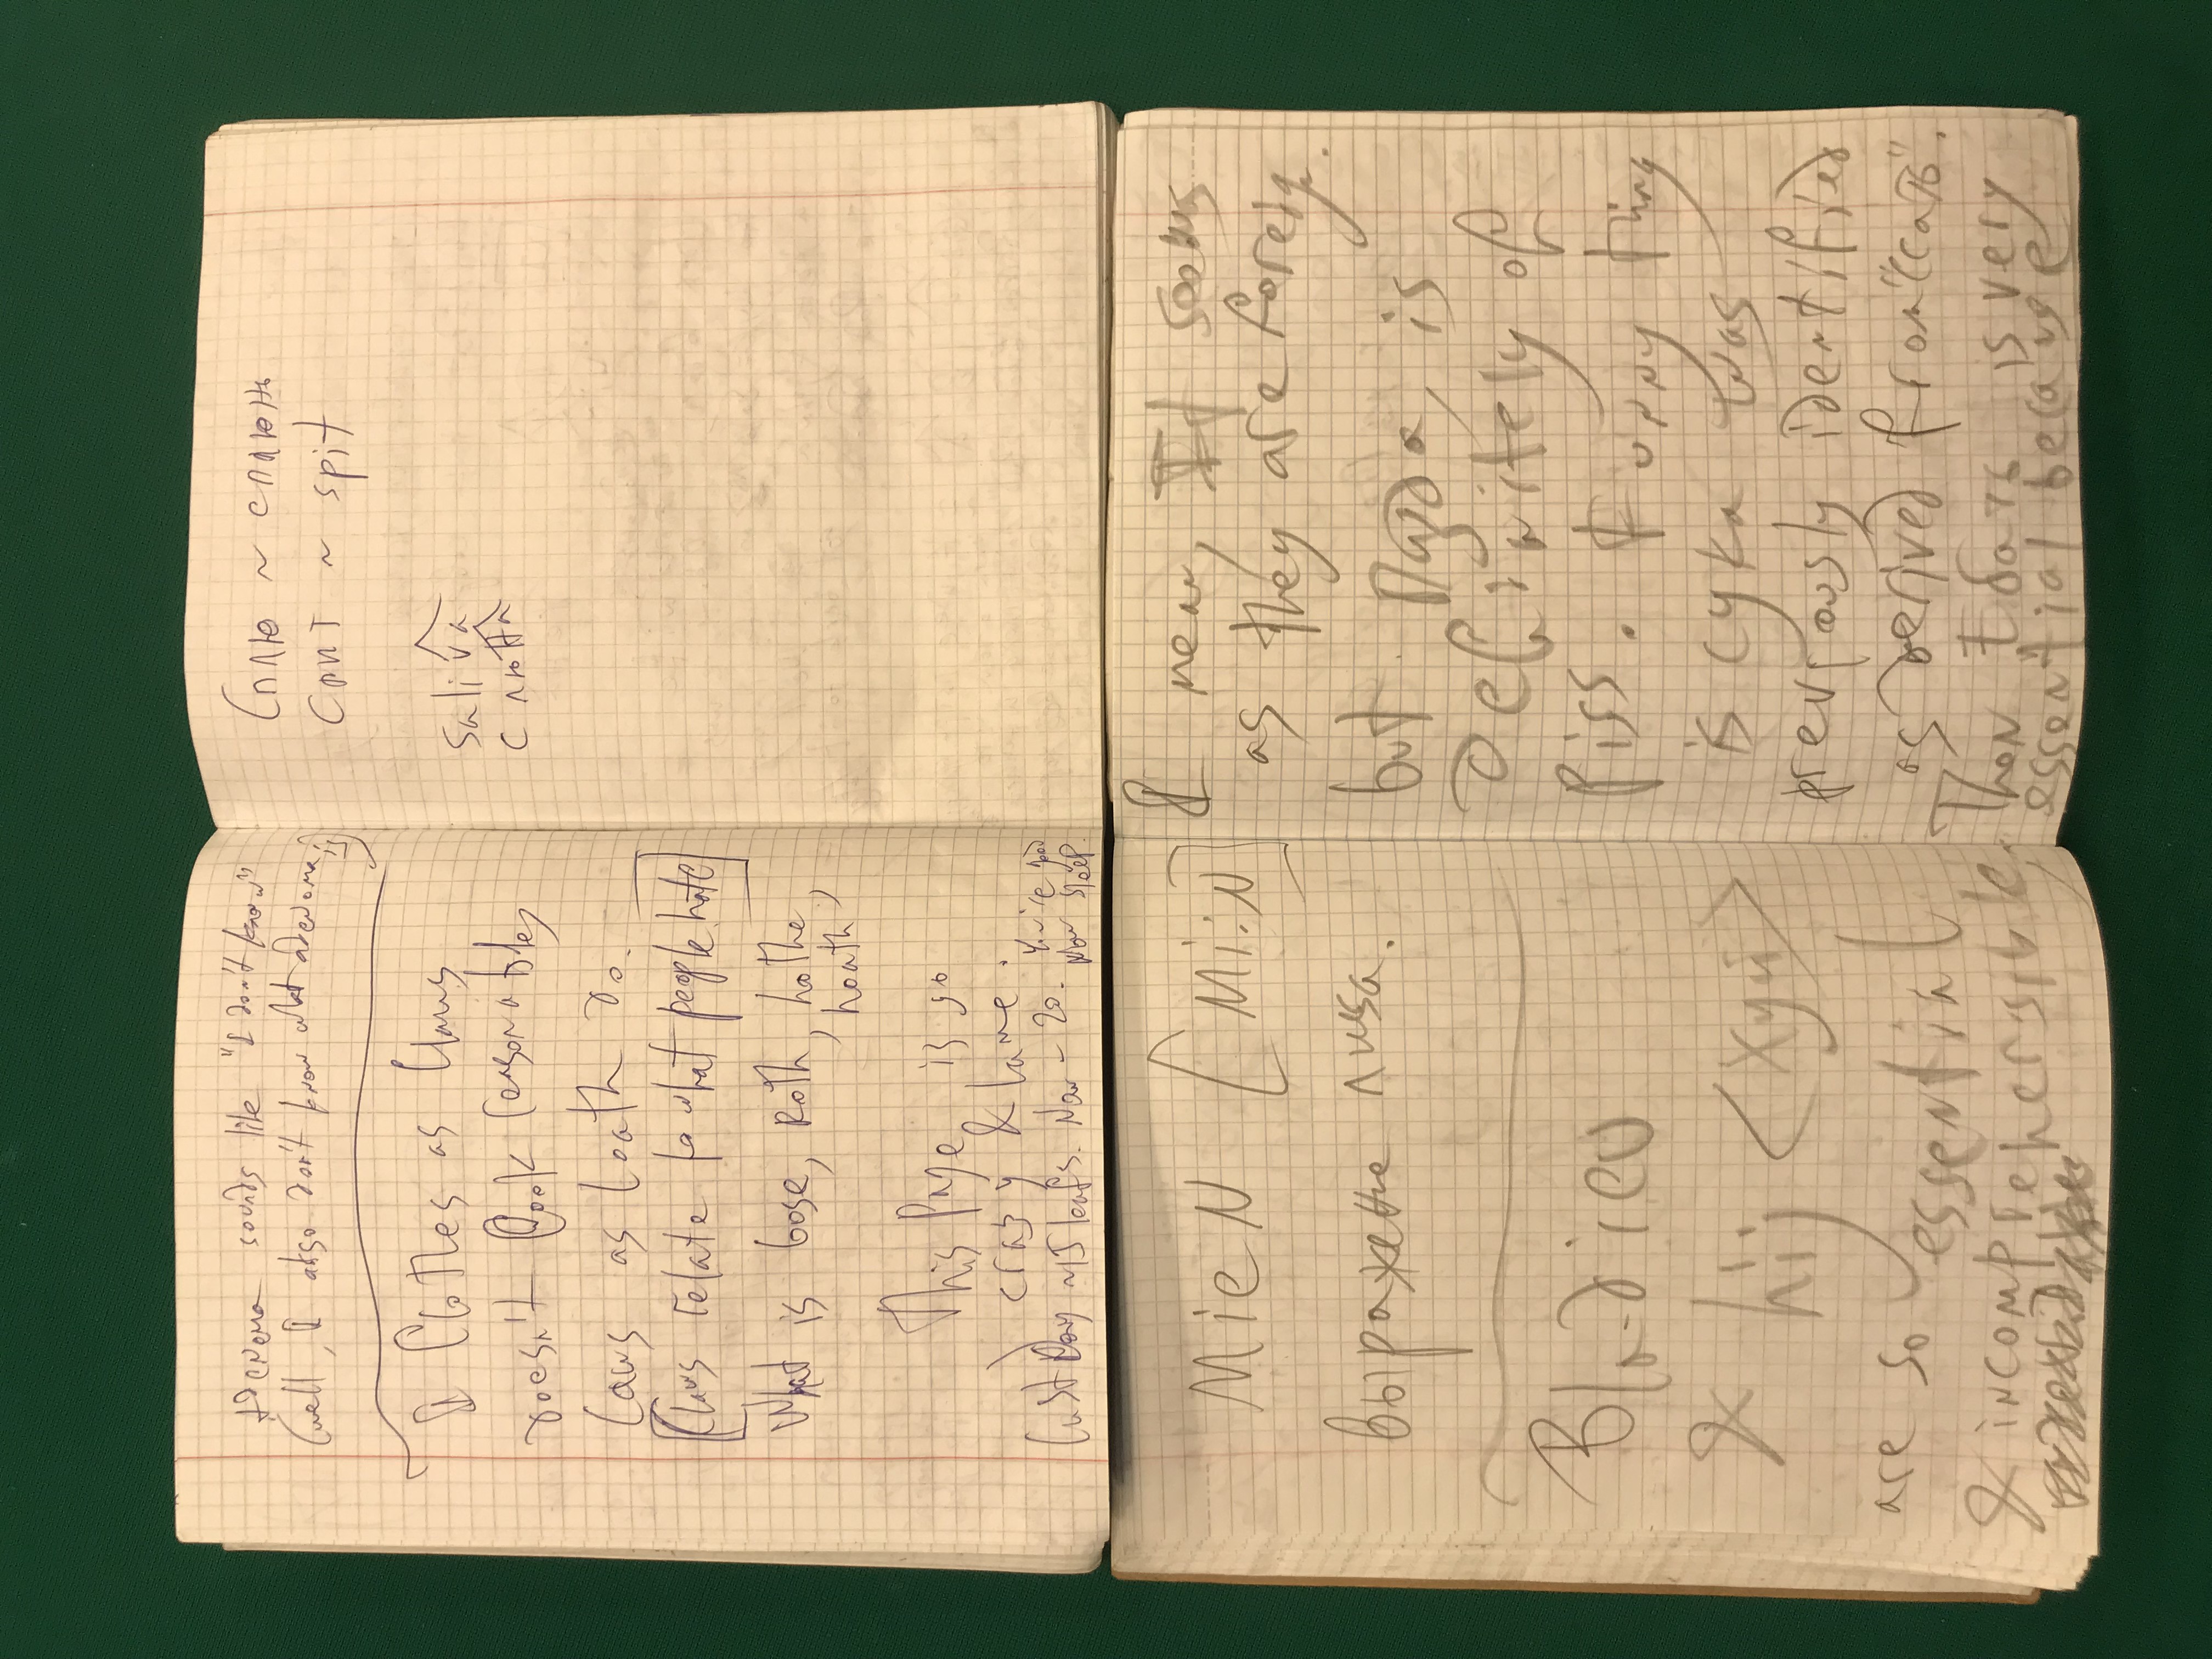 Adenoma sounds like "I don't know"
(well, I also don't know what adenoma is)
I Clothes as Claws
doesn't look reasonable,
Laws as loath do.
[Claws relate to what people hate]
What is bose, Roth, hothe,
hoath
This page is so
crazy & lame.
Last Day ~15 leafs. Now – 20. You're good
Now sleep.
Сплю ~ сплюнь
Спит ~ spit
saliva
слюна
Mien [Mi:N]
выражение лица.
Bla-dieu
& hij <хуй>
are so essential
& incomprehensible.
I mean, It seems
as they are foreign.
but пизда, is
definitely of
piss. Funny thing
is сука was
previously identified
as derived from "ссать".
Then ебать is very
essential because